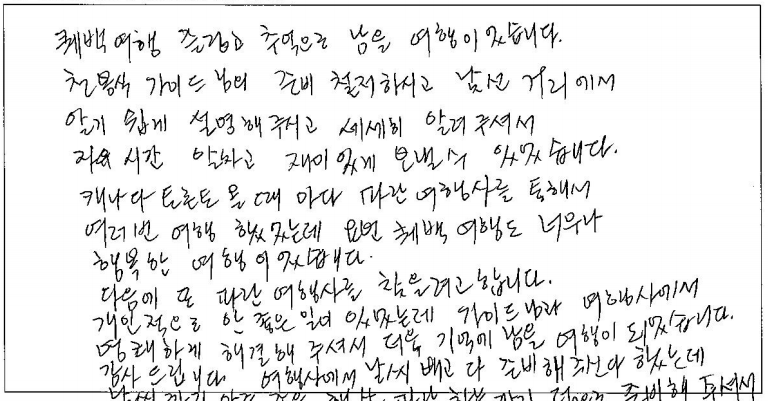 퀘백여행 즐겁고 추억으로 남을 여행이었습니다.
천봉식 가이드님의 준비 철저하시고 낯선 거리에서
알기 쉽게 설명해주시고 세세히 알려주셔서
시간 알차고 재미있게 보낼수 있었습니다.
캐나다 토론토 올때 마다 파란여행사를 통해서
여러번 여행 했었는데 요번 퀘백 여행도 너무나
행복한 여행이었습니다.
다음에 또 파란여행사를 찾을려고합니다.
개인적으로 안 좋은 일이 있었는데 가이드님과 여행사에서
명쾌하게 해결해 주셔서 더욱 기억에 남을 여행이 되었습니다.
감사드립니다. 여행사에서 날씨 빼고 다 준비해주신다 했는데
준비해 주셔서